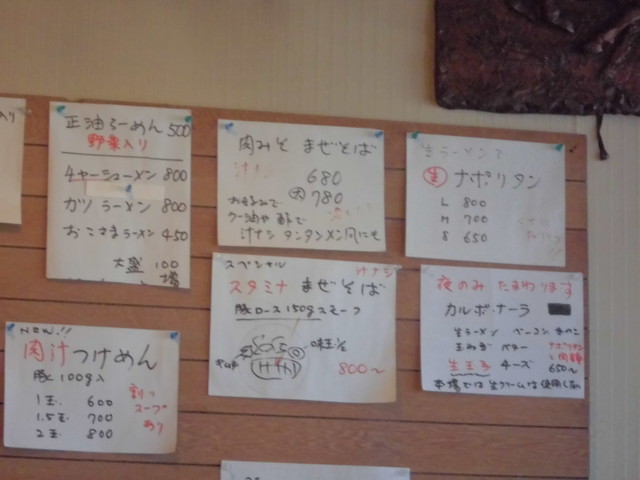 正油らーめん 500
野菜入り
チャーシューメン 800
ガツラーメン 800
おこさまラーメン 450
大盛 100
肉みそ まぜそば
汁ナシ
680
大 780
お好みで
ラー油や酢で
汁ナシタンタンメン風にも
生ラーメンで
生 ナポリタン
L 800
M 700
S 650
スペシャル
汁ナシ
スタミナ まぜそば
豚ロース150gスモーク
味玉½
800〜
夜のみ たまわります
カルボナーラ
生ラーメン ベーコン
玉ねぎ バター
生玉子 チーズ
650〜
本場では生クリームは使用しない
NEW!!
肉汁つけめん
豚100g入
割り
スープ
あり
1玉. 600
1.5玉 700
2玉 800